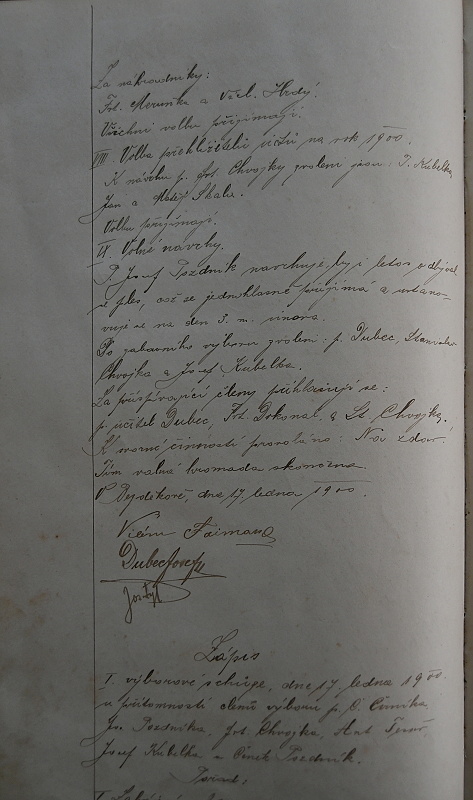 Za náhradníky:
Fr. Meruňka a Václ. Hrdý.
Všichni volbu přijímají.
VIII. Volba přehlížitelů účtů na rok 1900.
K návrhu p. Ant. Chvojky zvoleni jsou: P. Kubelka
Jan a Matěj Skala.
Volbu přijímají.
IX. Volné návrhy.
P. Josef Pozdník navrhuje, by i letos odbýval
se ples, což se jednohlasně přijímá a ustano-
vuje se na den 3. m. února.
Do zábavního výboru zvoleni: p. Dubec, Stanislav
Chvojka a Josef Kubelka.
Za přispívající členy přihlašují se:
p. učitel Dubec, Fr. Dokonal, a St. Chvojka.
K svorné činnosti provoláno: Na zdar.
Tím valná hromada skončena.
V dne 17. ledna 1900.
Faiman
Dubec Josef
Zápis
I. výborové schůze, dne 17. ledna 1900
u přítomnosti členů výboru p. O.
Jos. Pozdníka, Ant. Chvojka, Ant.
Josef Kubelka a Čeněk Pozdník.